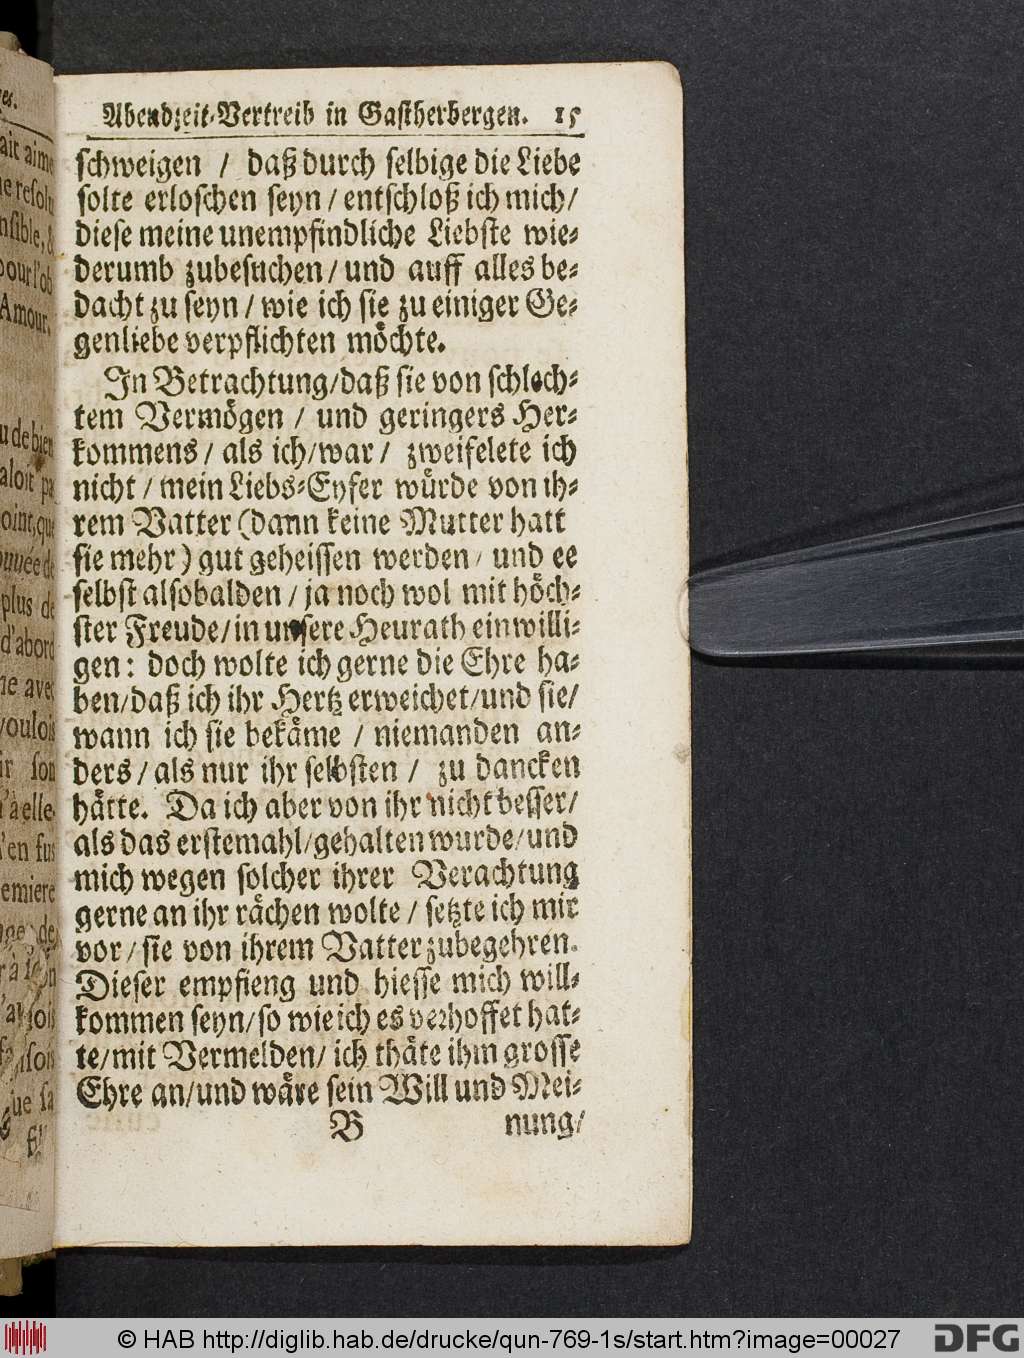 Abendzeit-Vertreib in Gastherbergen. 15
schweigen / daß durch selbige die Liebe
solte erloschen seyn / entschloß ich mich /
diese meine unempfindliche Liebste wie=
derumb zubesuchen / und auff alles be=
dacht zu seyn / wie ich sie zu einiger Ge=
genliebe verpflichten möchte.
In Betrachtung / daß sie von schlech=
tem Vermögen / und geringers Her=
kommens / als ich / war / zweifelete ich
nicht / mein Liebs=Eyfer würde von ih=
rem Vatter (dann keine Mutter hatt
sie mehr) gut geheissen werden / und ee
selbst alsobalden / ja noch wol mit höch=
ster Freude / in unsere Heurath einwilli=
gen: doch wolte ich gerne die Ehre ha=
ben / daß ich ihr Hertz erweichet / und sie /
wann ich sie bekäme / niemanden an=
ders / als nur ihr selbsten / zu dancken
hätte. Da ich aber von ihr nicht besser /
als das erstemahl / gehalten wurde / und
mich wegen solcher ihrer Verachtung
gerne an ihr rächen wolte / setzte ich mir
vor / sie von ihrem Vatter zubegehren.
Dieser empfieng und hiesse mich will=
kommen seyn / so wie ich es verhoffet hat=
te / mit Vermelden / ich thäte ihm grosse
Ehre an / und wäre sein Will und Mei=
B nung /
ait aime
pour l'ob
Amour,
u de bien
aloit pa
oint, que
plus de
d'abord
ne avec
voulois
ir son
'à elle
'en fus
emiere
que sa
© HAB http://diglib.hab.de/drucke/qun-769-1s/start.htm?image=00027
DFG